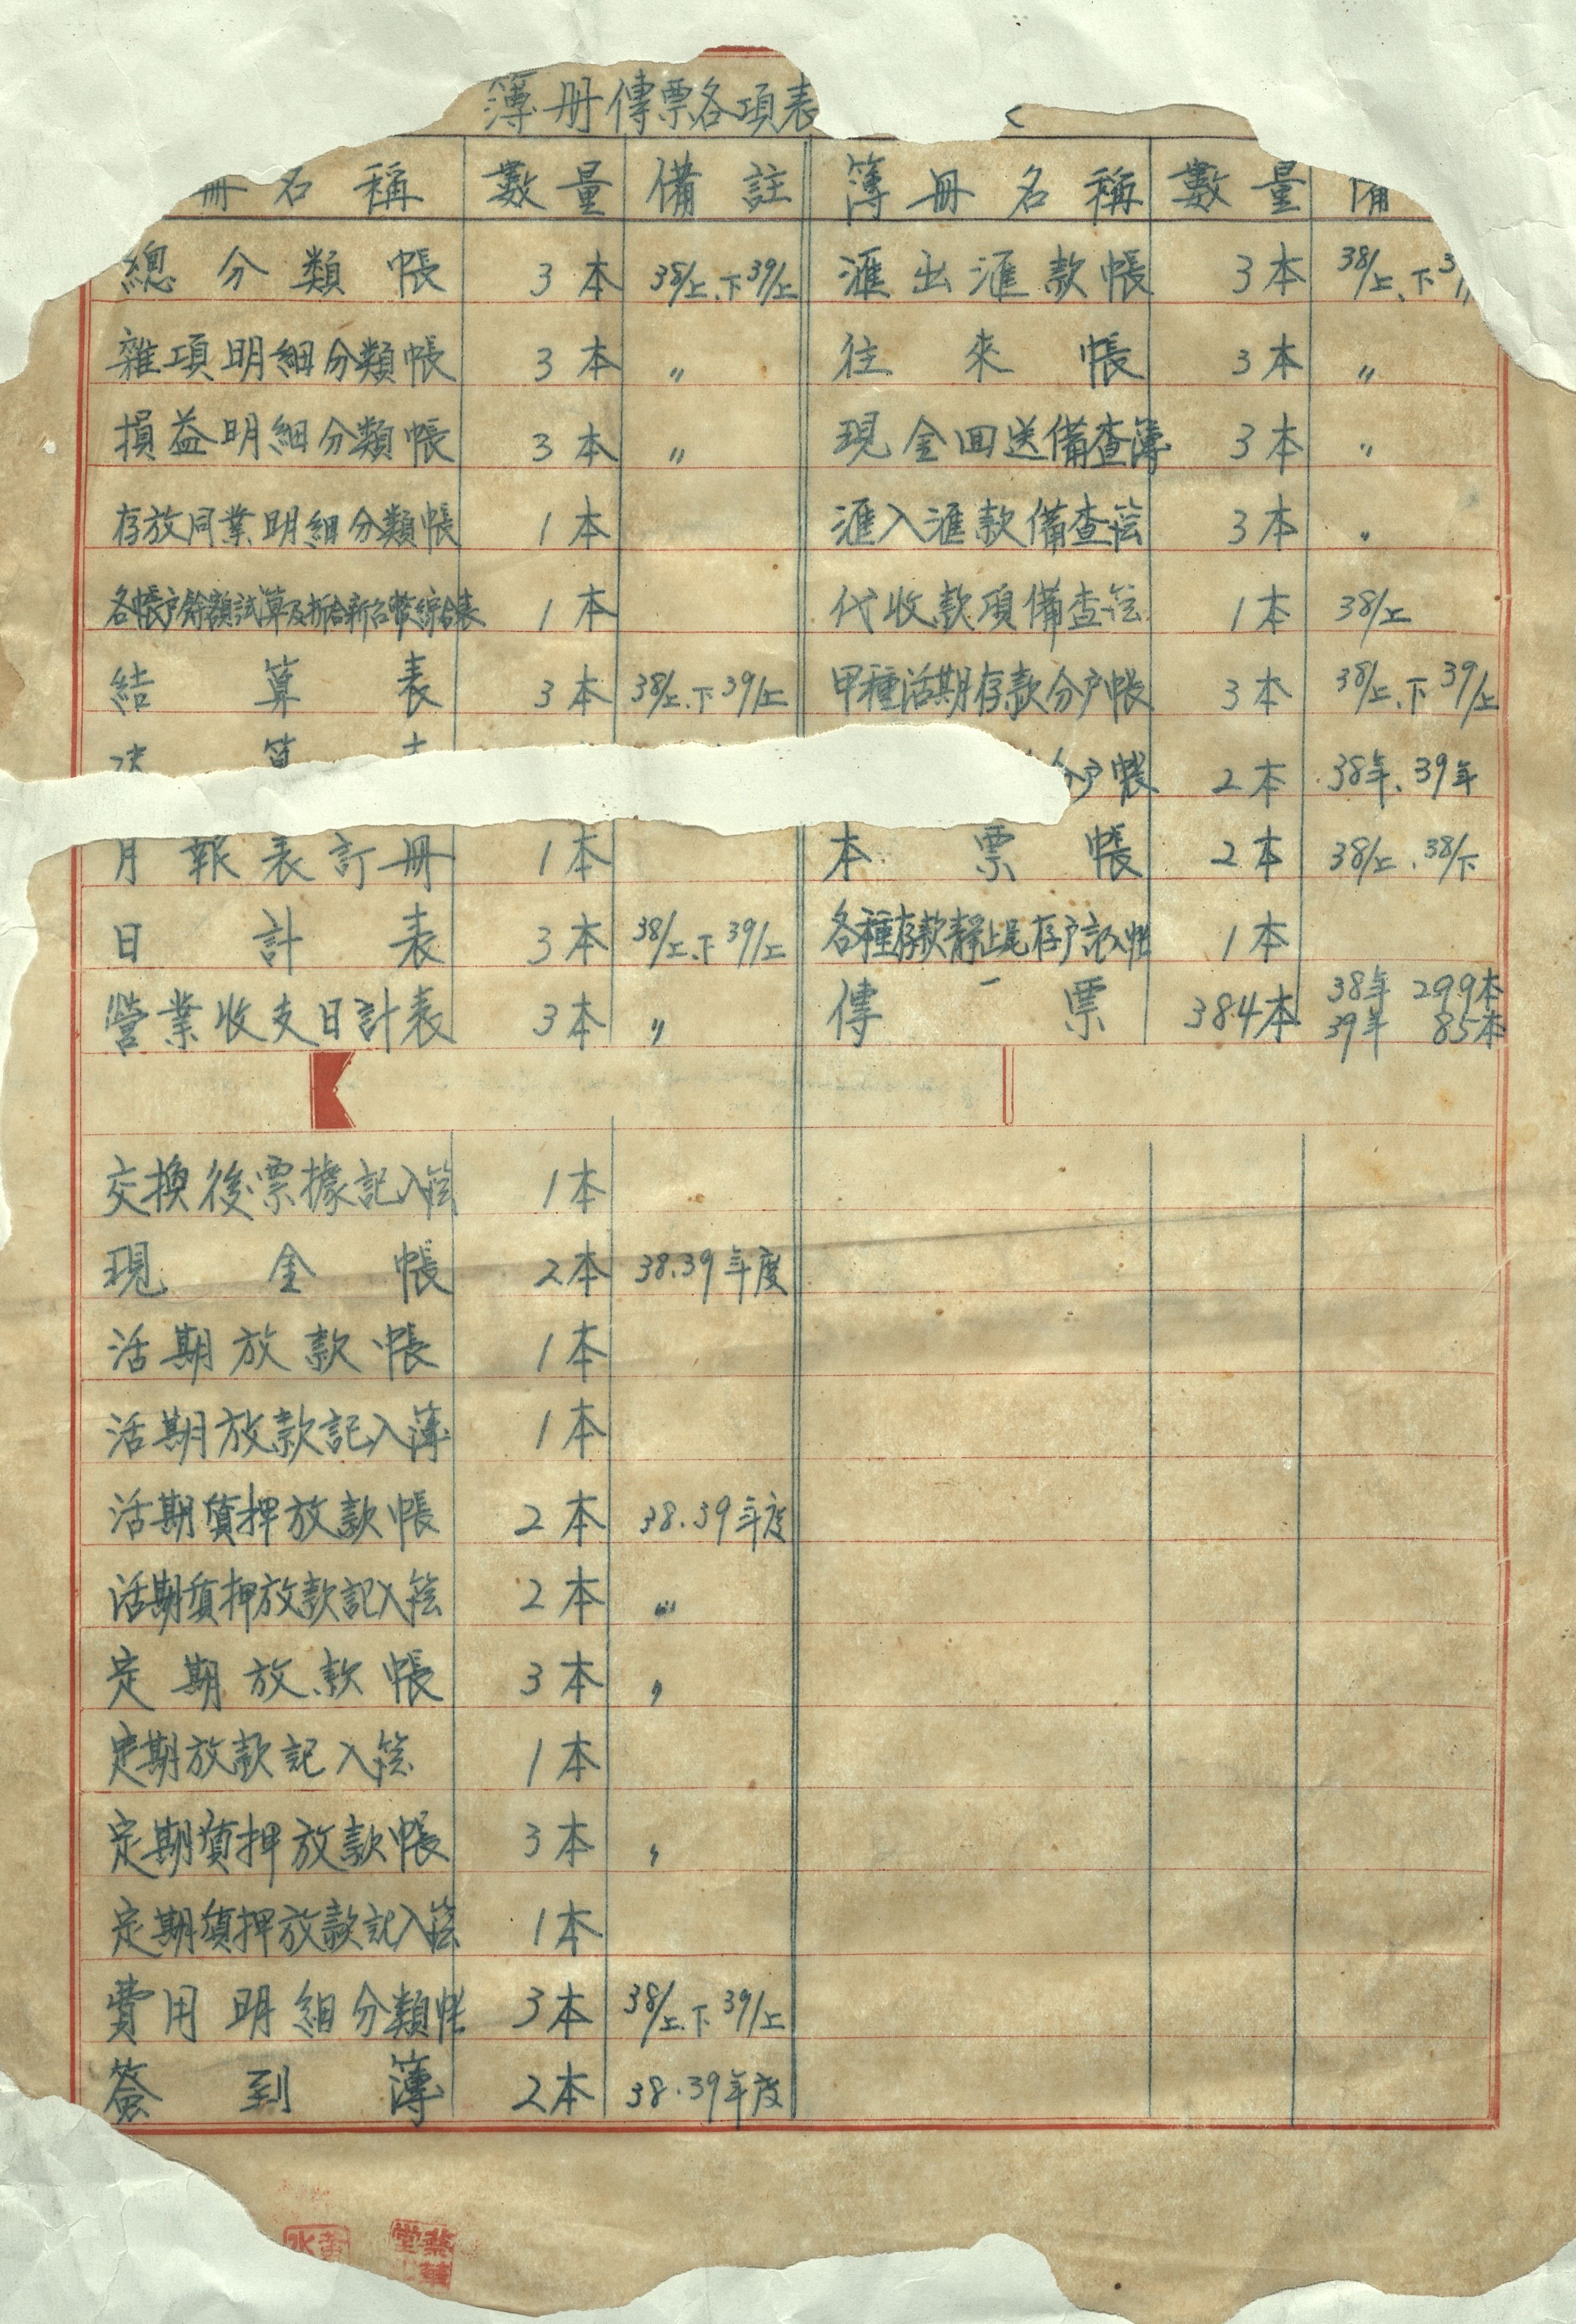 簿册傳票各項表
册名稱 數量 備註 簿册名稱 數量 備
總分類帳 3本 38/上.下39/上 滙出滙款帳 3本 38/上.下
雜項明細分類帳 3本 〃 往來帳 3本 〃
損益明細分類帳 3本 〃 現金回送備查簿 3本 〃
存放同業明細分類帳 1本 滙入滙款備查簿 3本 〃
各帳户餘額試算及折合新台幣綜合表 1本 代收款項備查簿 1本 38/上
結算表 3本 38/上.下39/上 甲種活期存款分户帳 3本 38/上.下39/上
算 分户帳 2本 38年.39年
月報表訂册 1本 本票帳 2本 38/上.38/下
日計表 3本 38/上.下39/上 各種存款靜止尾存户記入帳 1本
營業收支日計表 3本 〃 傳票 384本 38年 299本
39年 85本
交換後票據記入簿 1本
現金帳 2本 38.39年度
活期放款帳 1本
活期放款記入簿 1本
活期質押放款帳 2本 38.39年度
活期質押放款記入簿 2本 〃
定期放款帳 3本 〃
定期放款記入簿 1本
定期質押放款帳 3本 〃
定期質押放款記入簿 1本
費用明細分類帳 3本 38/上.下39/上
簽到簿 2本 38.39年度
黃水
葉華堂